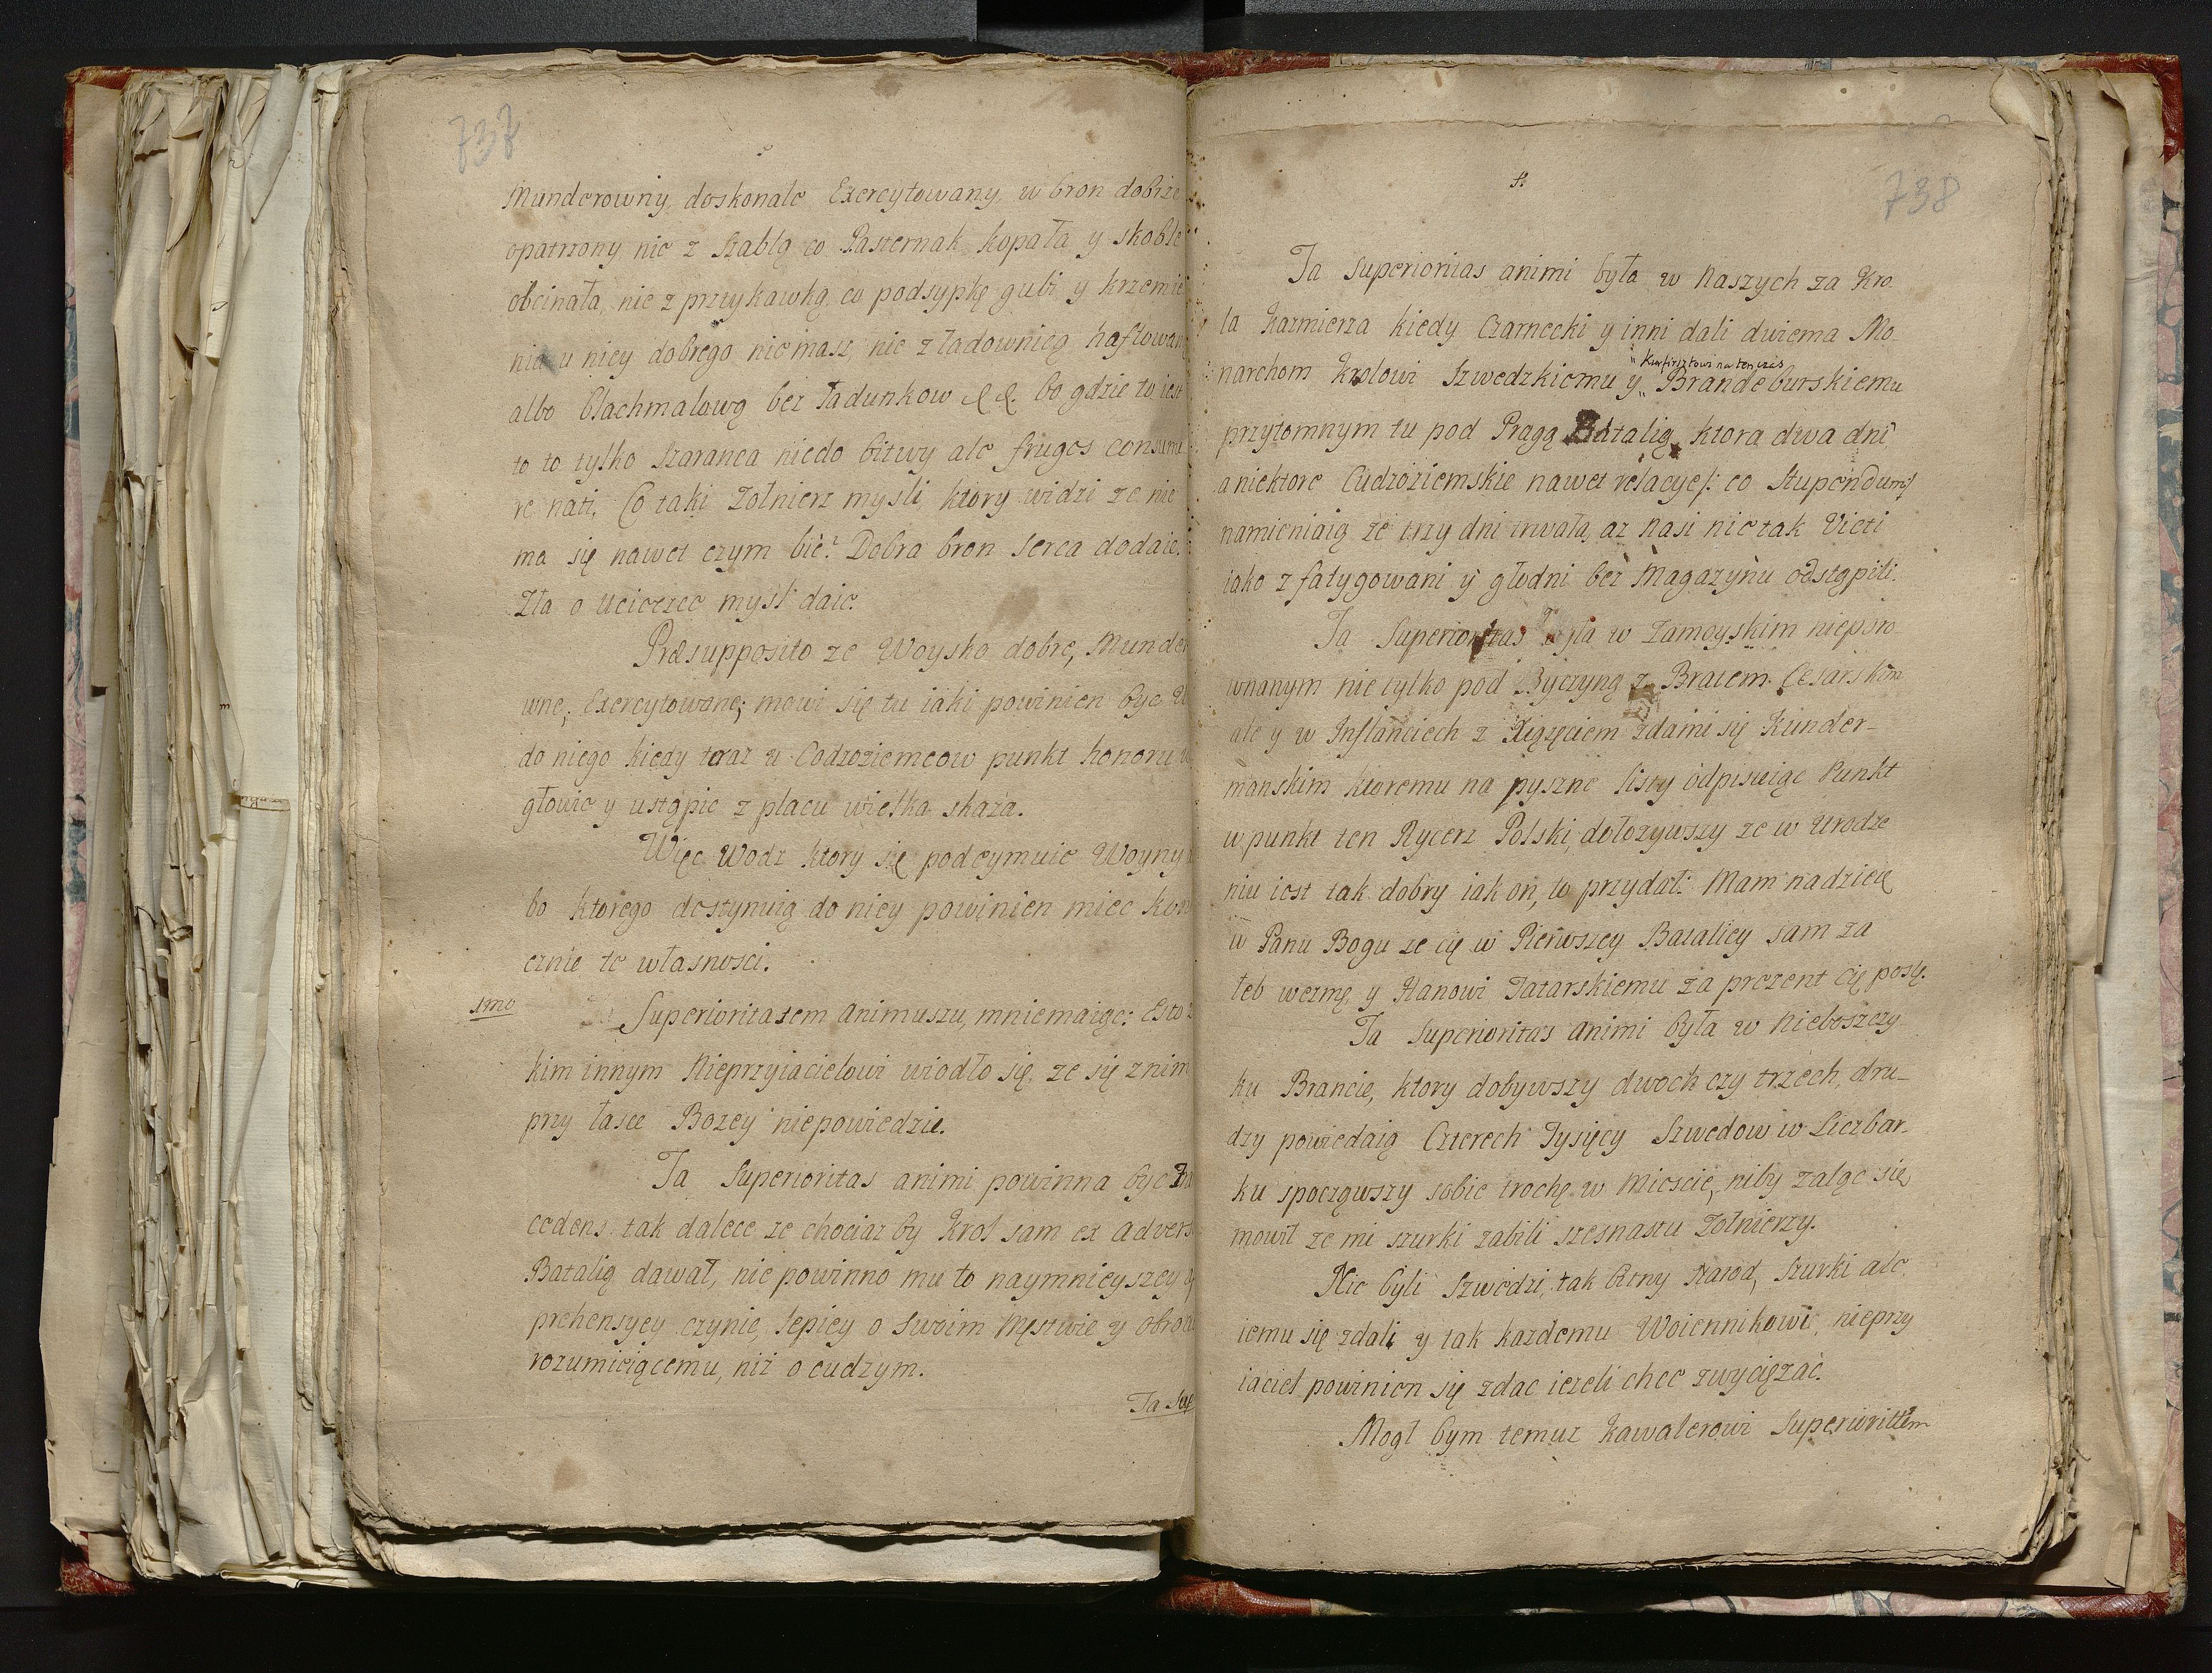 737
Munderowny, doskonale Exercytowany, w bron dobrze
opatrzony nie z szablą co Pasternak kopała y skoble
obcinała, nie z przykawką co podsypkę gubi y krzemie
nia u niey dobrego nie masz, nie z ładownicą haftowan
albo Blachmalową bez ładunkow & &. bo gdzie to iest
to to tylko szarancza niedo bitwy ale fruges consume
re nati. Co taki Zołnierz mysli, ktory widzi ze nie
ma się nawet czym bić? Dobra bron serca dodaie.
Zła o ucieczce mysl daie.
Præsupposito ze Woysko dobre, Munder
wne, Exercytowane; mowi się tu iaki powinien byc W
do niego kiedy teraz u Codzoziemcow punkt honoru w
głowie y ustąpic z placu wielka skaza.
Więc Wodz ktory się podeymuie Woyny
bo ktorego destynuią do niey powinien miec ko
cznie te własnosci.
1mo
Superioritatem Animuszu, mniemaiąc: Esto z
kim innym Nieprzyiacielowi wiodło się, ze się z nim
przy łasce Bozey niepowiedzie.
Ta Superioritas animi powinna byc
cedens tak dalece ze chociaz by Krol sam ex advers
Batalią dawał, nie powinno mu to naymnieyszey
prehensyey czynic, lepiey o swoim Męstwie y obro
rozumieiącemu, niż o cudzym.
Ta Sup
738
Ta Superioritas animi była w Naszych za Kro
la Kazmierza kiedy Czarnecki y inni dali dwiema Mo-
narchom Krolowi Szwedzkiemu y Kurfirsztowi na ten czas Brandeburskiemu
przytomnym tu pod Pragą Batalią, ktora dwa dni
a niektore Cudzoziemskie nawet relacye /: co Stupendum /
namieniaią ze trzy dni trwała, az Nasi nie tak Victi
iako z fatygowani y głodni bez Magazynu odstąpili.
Ta Superioritas była w Zamoyskim niepro-
wnanym nie tylko pod Byczyną z Bratem Cesarskim
ale y w Inflanciech z Xiązęciem zdami się Kunder-
manskim ktoremu na pyszne listy odpisuiąc Punkt
w punkt ten Rycerz Polski, dołozywszy ze w urodze
niu iest tak dobry iak on, to przydał: Mam nadzieię
w Panu Bogu ze cię w Pierwszey Bataliey sam za
łeb wezmę, y Hanowi Tatarskiemu za prezent cię poslę.
Ta Superioritas Animi była w Nieboszczy
ku Brancie, ktory dobywszy dwoch czy trzech, dru-
dzy powiedaią Czterech Tysięcy Szwedow w Liczbar-
ku spocząwszy sobie trochę w Miescie, niby zaląc się
mowił ze mi szurki zabili szesnastu Zołnierzy.
Nie byli Szwedzi, tak bitny Narod, szurki ale
iemu się zdali y tak kazdemu Woiennikowi nieprzy
iaciel powinien się zdac iezeli chce zwyciężać.
Mogł bym temuz Kawalerowi Superioritatem